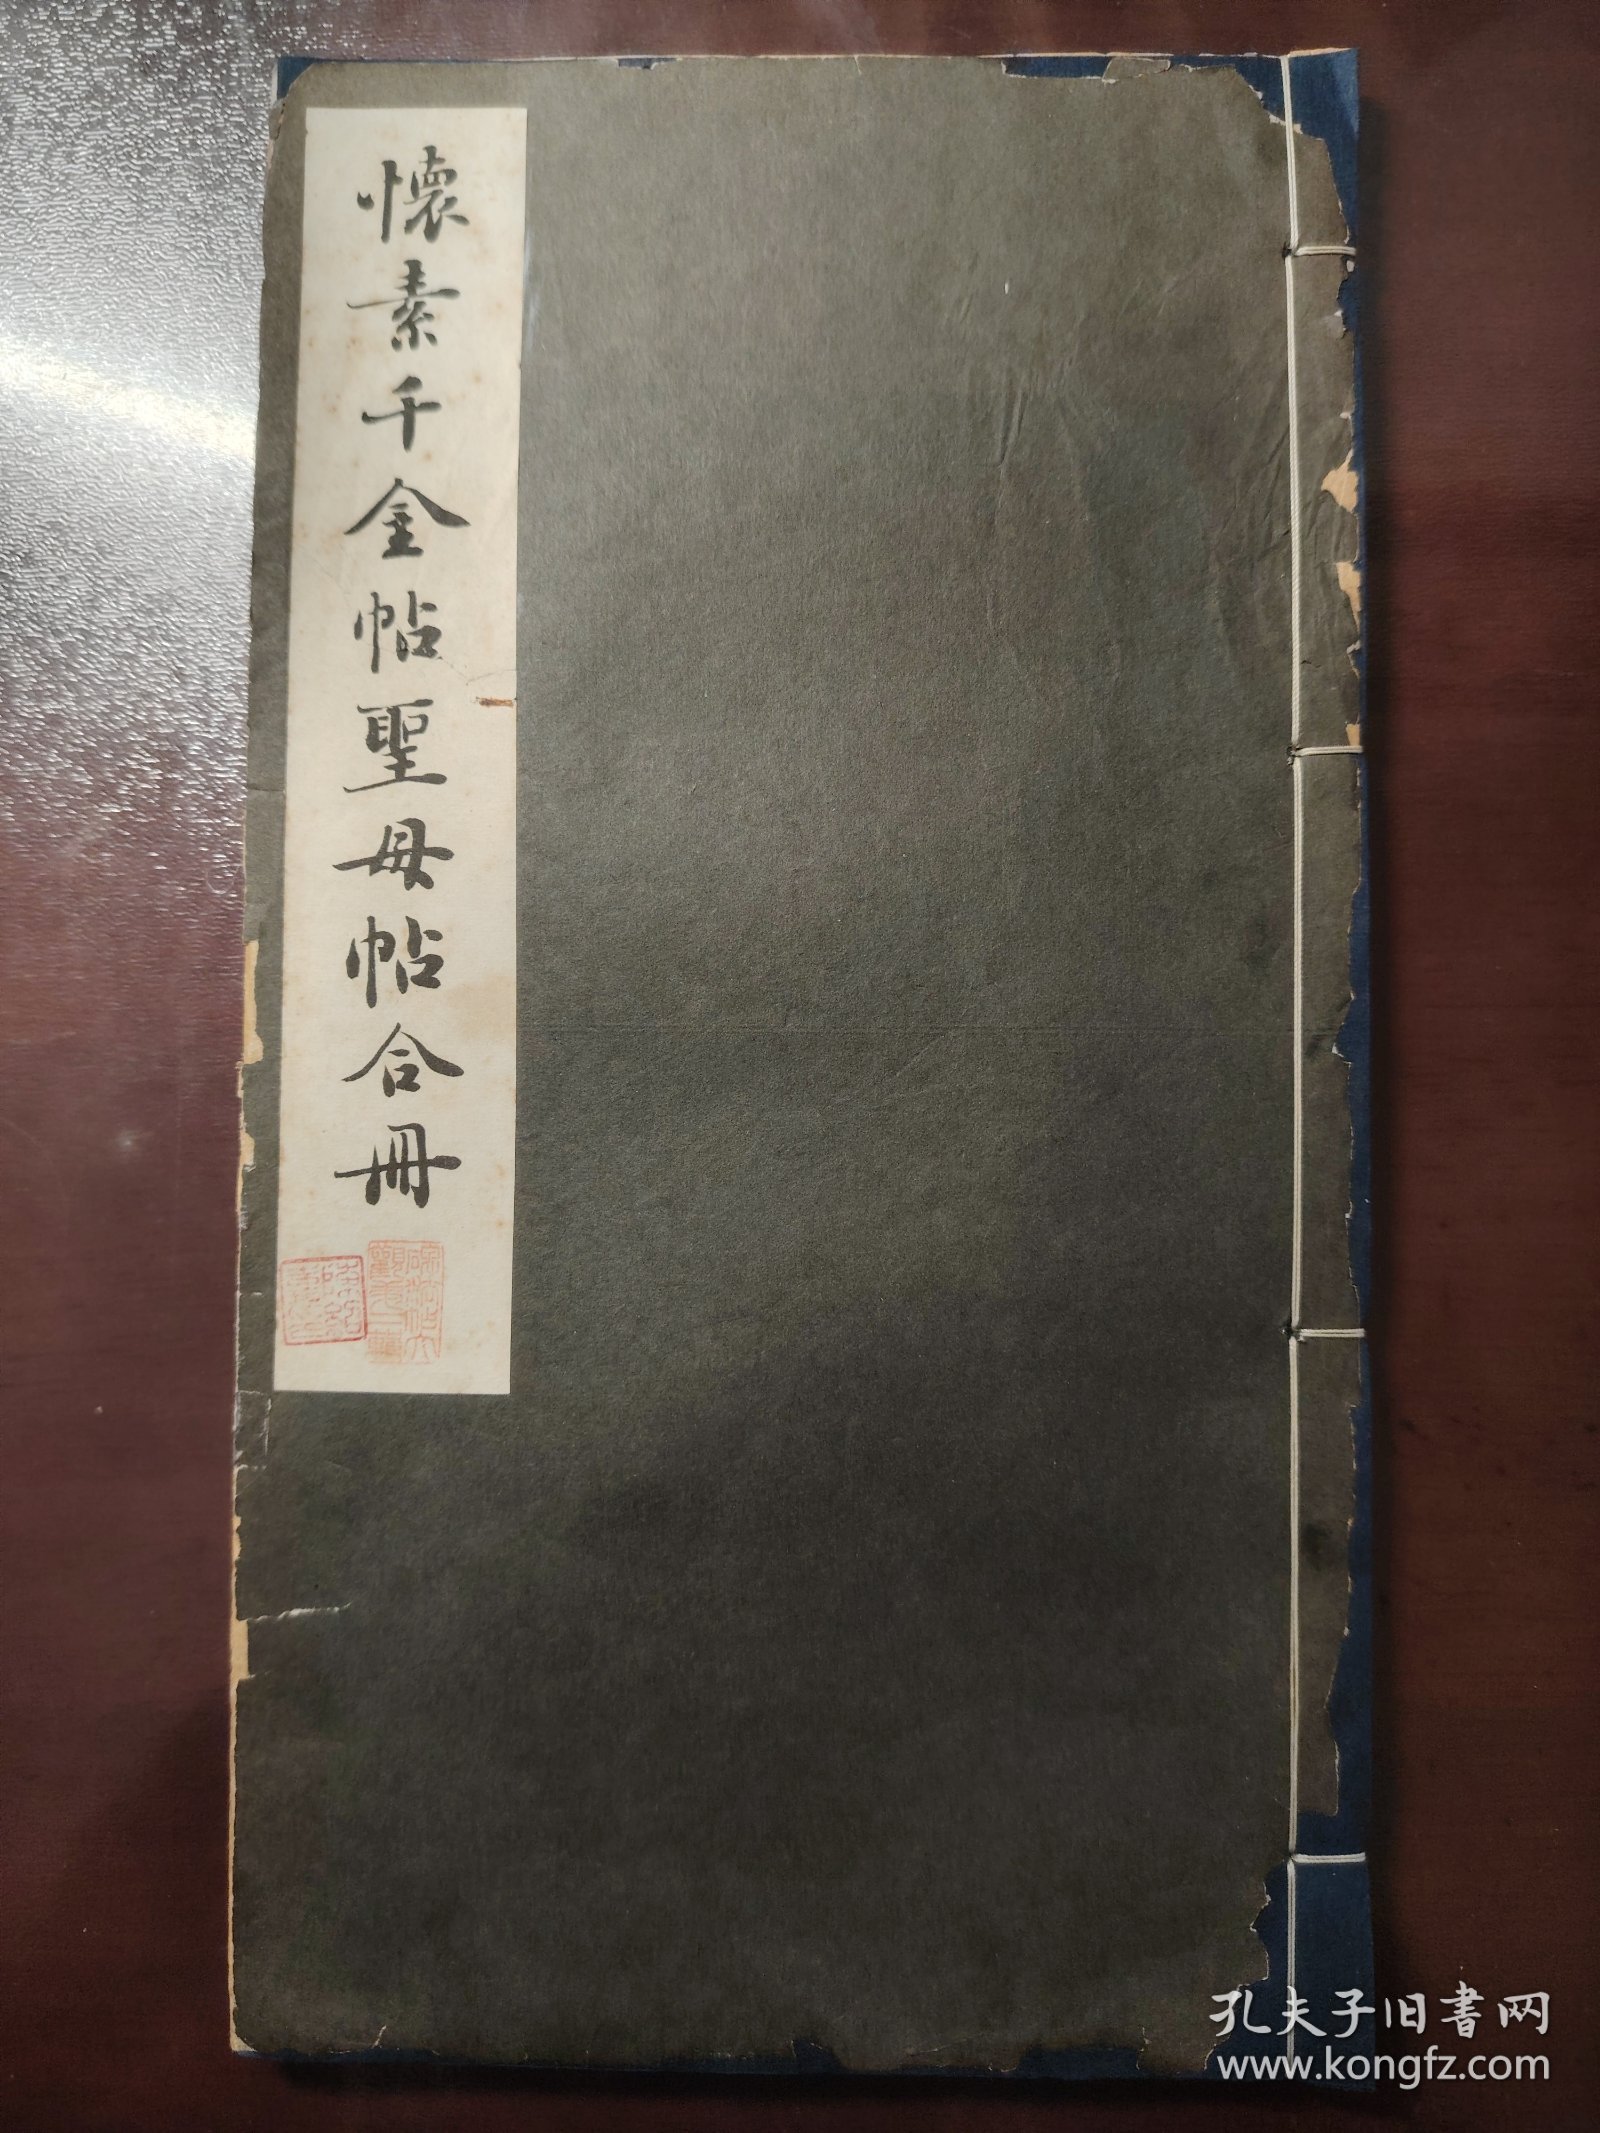 懷素千金帖聖母帖合冊
孔夫子旧书网
www.kongfz.com